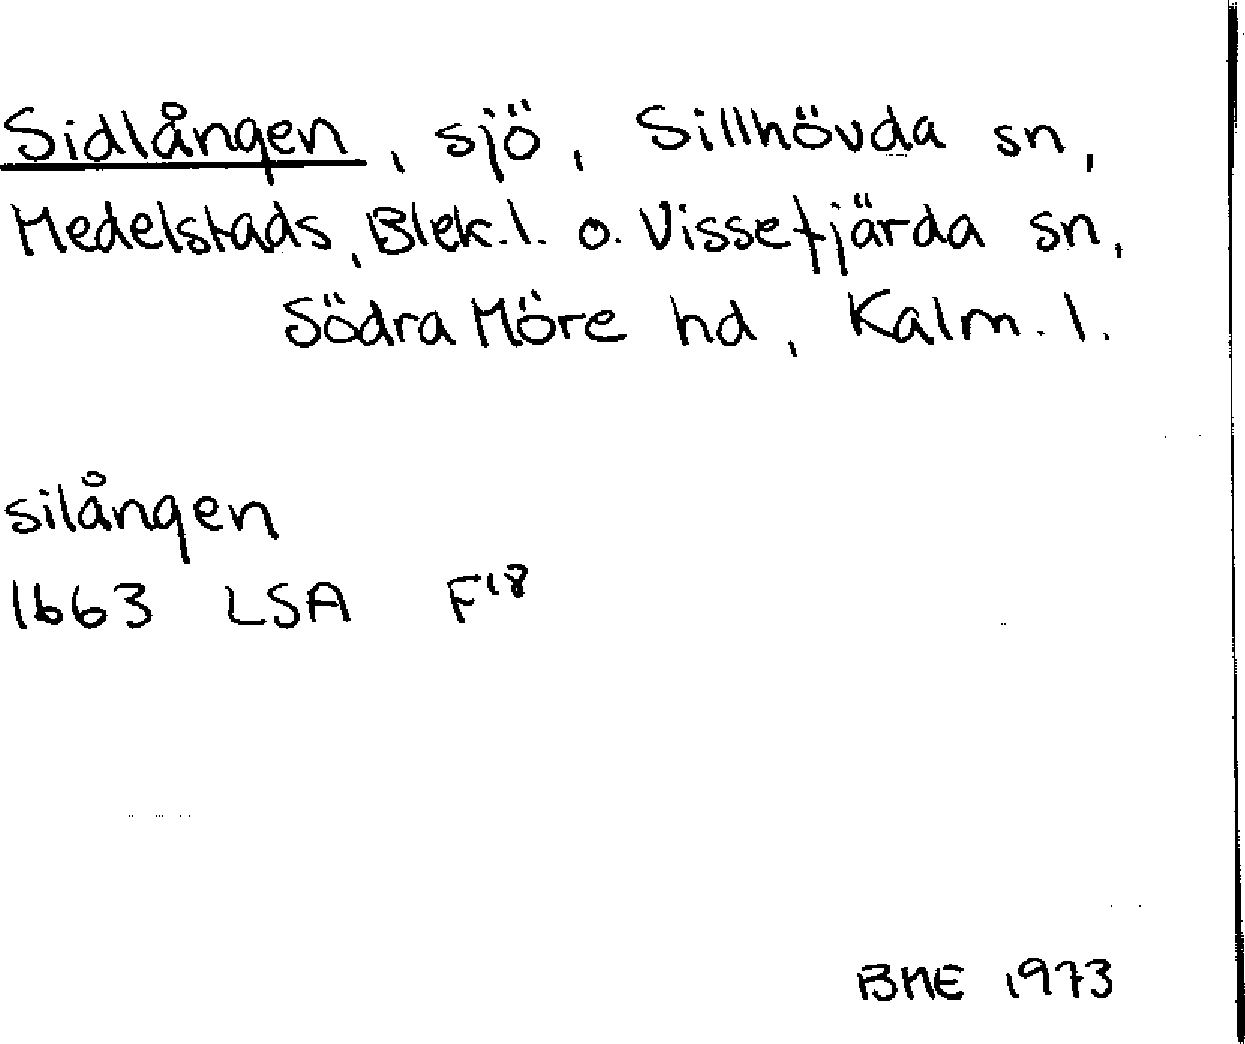 Sidlången, sjö, Sillhövda sn,
Medelstads, Blek.l. o. Vissefjärda sn,
Södra Möre hd, Kalm. l.
silången
1663 LSA F18
BME 1973